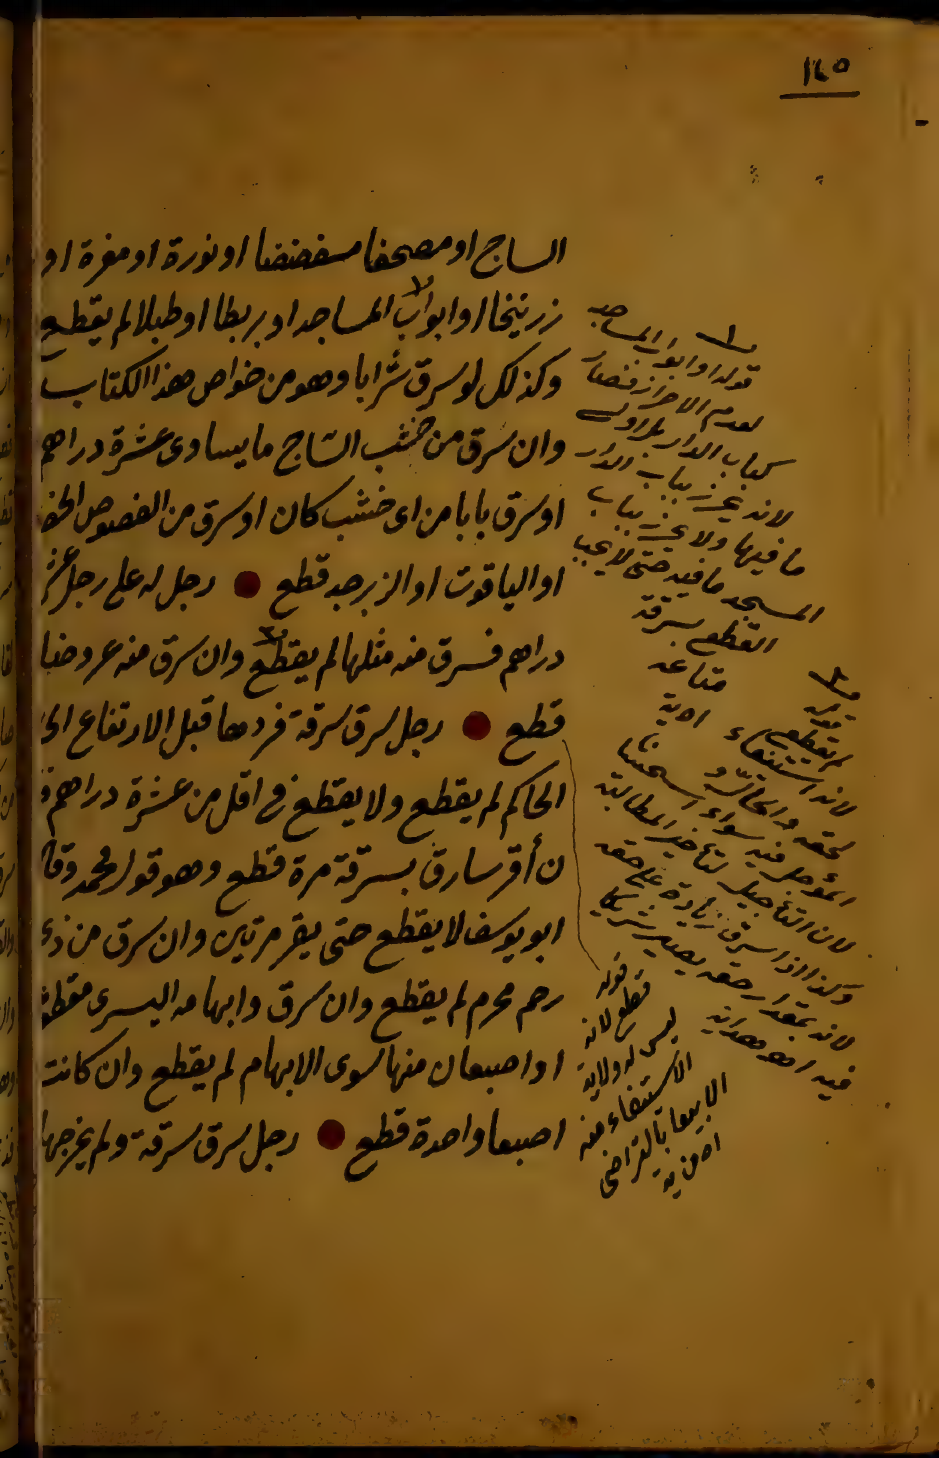 ١٤٥
الساج او مصحفا مفضضا او نورة او مغرة او
زرنيخا او ابواب المساجد او بربطا او طبلا لم يقطع
وكذلك لو سرق شرابا وهو من خواص هذا الكتاب
وان سرق من خشب الساج ما يساوى عشرة دراهم
او سرق بابا من اى خشب كان او سرق من الفصوص الخضر
او الياقوت او الزبرجد قطع رجل له على رجل عشرة
دراهم فسرق منه مثلها لم يقطع وان سرق منه عروضا
قطع رجل سرق سرقة فردها قبل الارتفاع الى
الحاكم لم يقطع ولا يقطع فى اقل من عشرة دراهم
ن أقر سارق بسرقة مرة قطع وهو قول محمد وقال
ابو يوسف لا يقطع حتى يقر مرتين وان سرق من ذى
رحم محرم لم يقطع وان سرق وابهامه اليسرى مقطوعة
او اصبعان منها سوى الابهام لم يقطع وان كانت
اصبعا واحدة قطع رجل سرق سرقة ولم يخرجها
١
قوله او ابواب المساجد
لعدم الاحراز فصار
كباب الدار بل اولى
لانه يحرز بباب الدار
ما فيها ولا يحرز بباب
المسجد ما فيه حتى لا يجب
القطع بسرقة
متاعه
٢
قوله
لم يقطع
لانه استيفاء
لحقه والحال و
المؤجل فيه سواء استحسانا
لان التأجيل لتأخير المطالبة
وكذا اذا سرق زيادة على حقه
لانه بمقدار حقه يصير شريكا
فيه اهـ هداية
قوله
قطع لانه
ليس له ولاية
الاستيفاء منه
الا بيعا بالتراضى